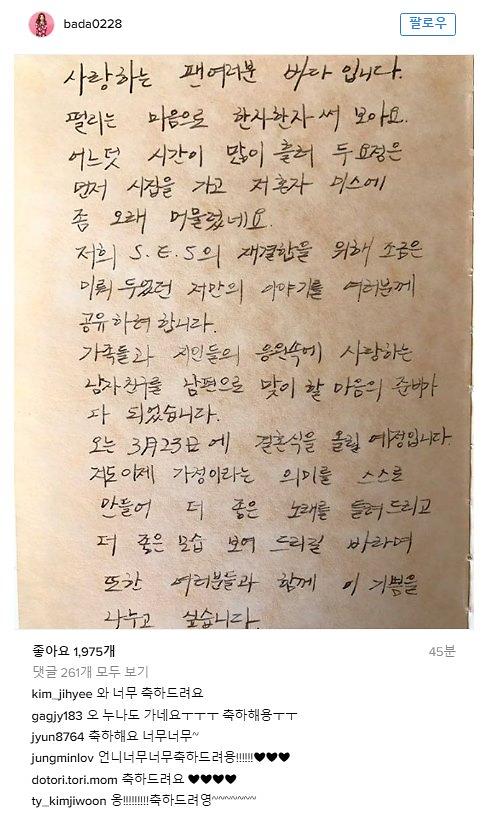 bada0228
팔로우
사랑하는 팬여러분 바다 입니다.
떨리는 마음으로 한자한자 써 보아요.
어느덧 시간이 많이 흘러 두 요정은
먼저 시집을 가고 저 혼자 미스에
좀 오래 머물렀네요.
저희 S.E.S의 재결합을 위해 조금은
미뤄 두었던 저만의 이야기를 여러분께
공유하려 합니다.
가족들과 지인들의 응원속에 사랑하는
남자친구를 남편으로 맞이 할 마음의 준비가
다 되었습니다.
오는 3月23日에 결혼식을 올릴 예정입니다.
저도 이제 가정이라는 의미를 스스로
만들어 더 좋은 노래를 들려 드리고
더 좋은 모습 보여 드리길 바라며
또한 여러분들과 함께 이 기쁨을
나누고 싶습니다.
좋아요 1,975개
45분
댓글 261개 모두 보기
kim_jihyee 와 너무 축하드려요
gagjy183 오 누나도 가네요ㅜㅜㅜ 축하해용ㅜㅜ
jyun8764 축하해요 너무너무~
jungminlov 언니너무너무축하드려용!!!!!!♥♥♥
dotori.tori.mom 축하드려요 ♥♥♥♥
ty_kimjiwoon 옹!!!!!!!!!축하드려영~~~~~~~